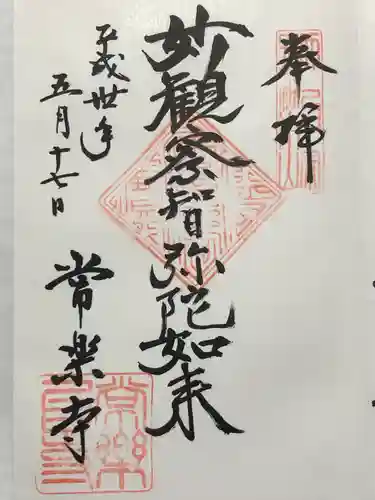 奉拝
妙観察智弥陀如来
平成卅年
五月十七日
常楽寺